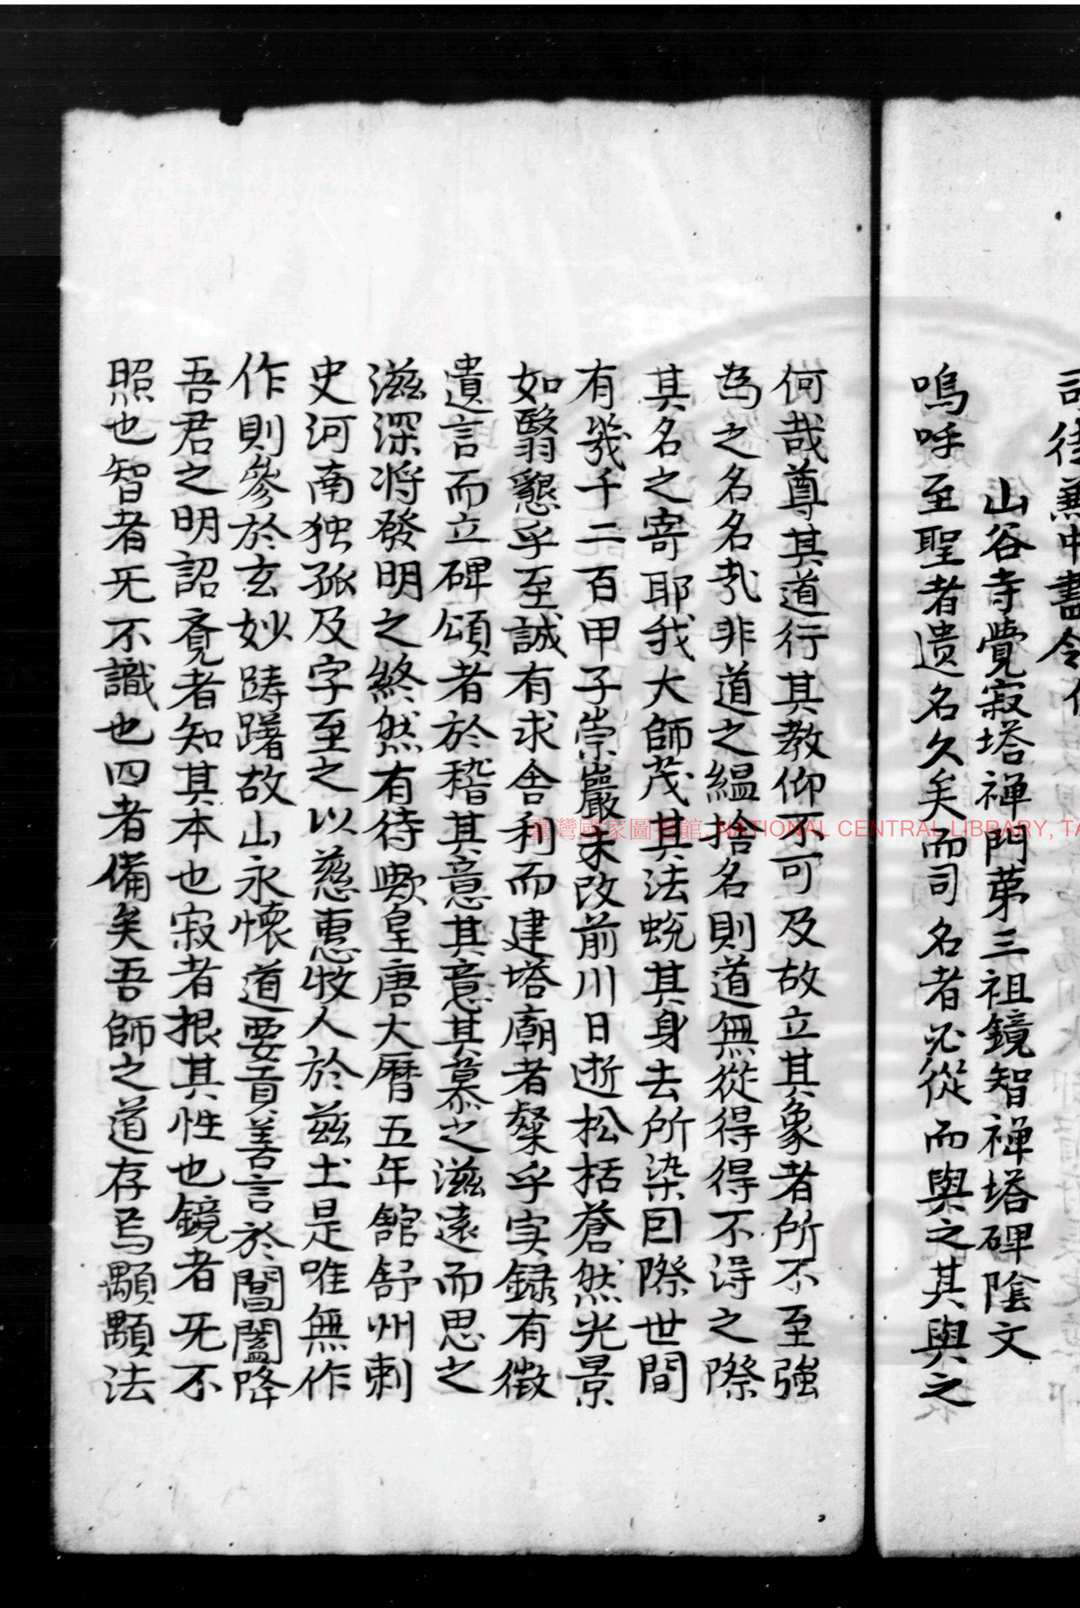 司徒兼中書令
山谷寺覺寂塔禅門苐三祖鏡智禅塔碑隂文
嗚呼至聖者遗名久矣而司名者必從而與之其與之
何哉尊其道行其教仰不可及故立其象者所不至強
為之名名乎非道之緼捨名則道無從得得不淂之際
其名之寄耶我大師茂其法蛻其身去所染囙際世間
有幾千二百甲子崇巖未改前川日逝松栝蒼然光景
如翳懇乎至誠有求舍利而建塔廟者粲乎实録有徵
遺言而立碑頌者於稽其意其意其慕之滋遠而思之
滋深将發明之終然有待歟皇唐大曆五年舘舒州刺
史河南独孤及字至之以慈惠牧人於兹土是唯無作
作則參於玄妙踌躇故山永懷道要貢善言於閶闔降
吾君之明詔覔者知其本也寂者掁其性也鏡者旡不
照也智者旡不識也四者備矣吾師之道存焉顒顒法
臺灣國家圖書館, NATIONAL CENTRAL LIBRARY, TA